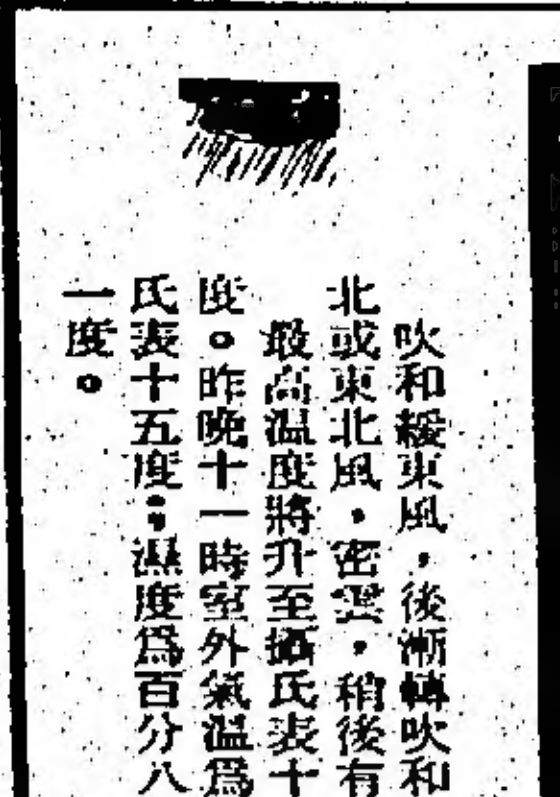 吹和緩東風，後漸轉吹和
北或東北風，密雲，稍後有
最高溫度將升至攝氏表十
度。昨晚十一時室外氣溫爲
氏表十五度；濕度爲百分八
一度。